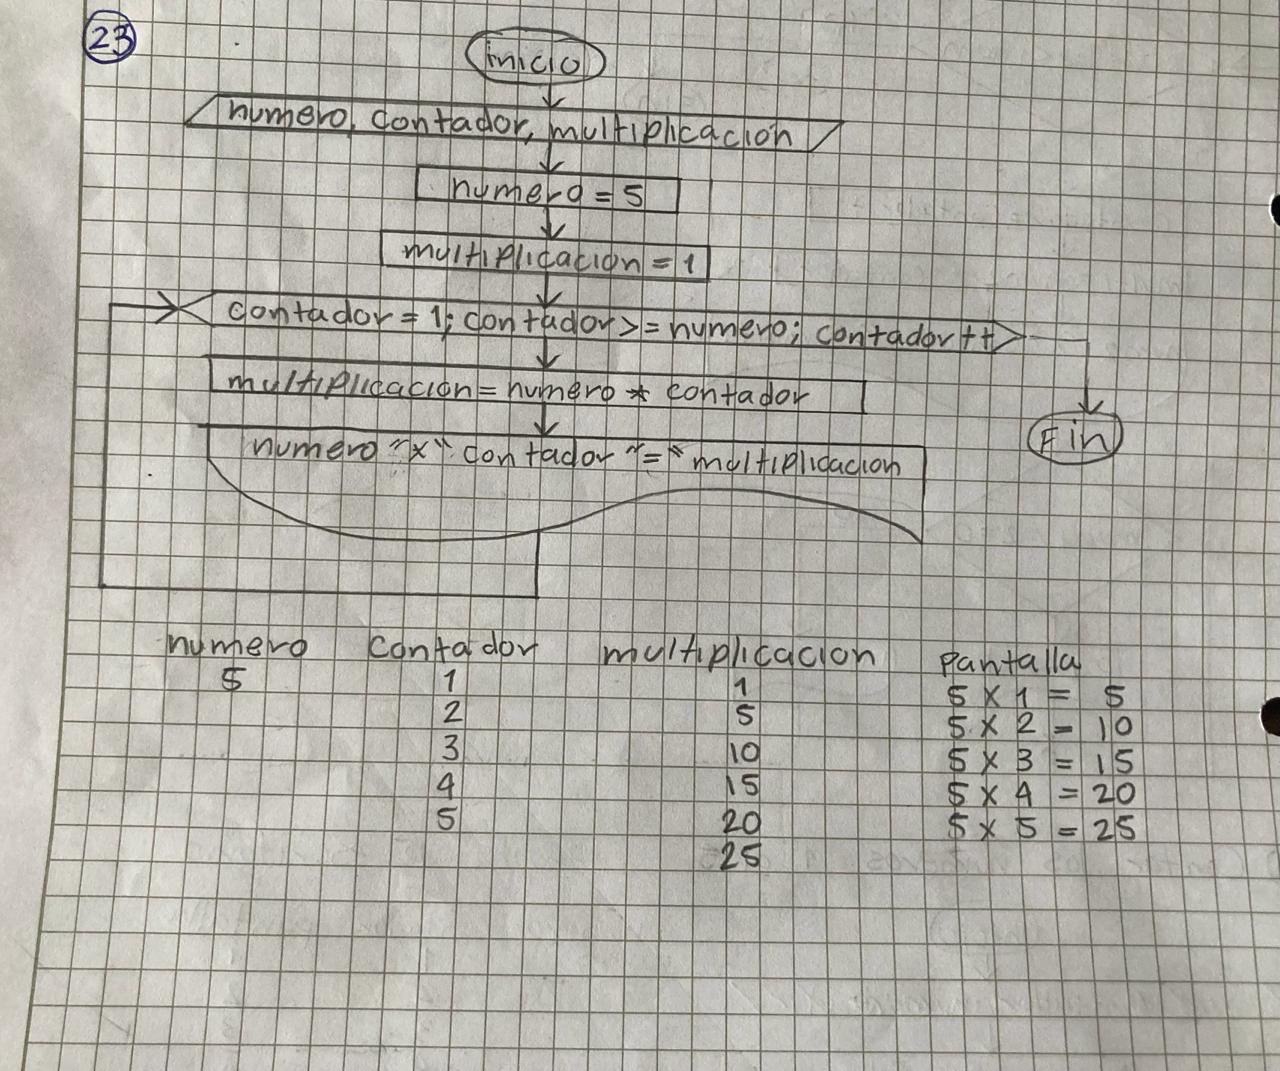 23
inicio
numero, contador, multiplicacion
numero = 5
multiplicacion = 1
contador = 1; contador >= numero; contador ++
multiplicacion = numero * contador
Fin
numero "x" contador "=" multiplicacion
numero contador multiplicacion pantalla
5 1 1 5 x 1 = 5
2 5 5 x 2 = 10
3 10 5 x 3 = 15
4 15 5 x 4 = 20
5 20 5 x 5 = 25
25